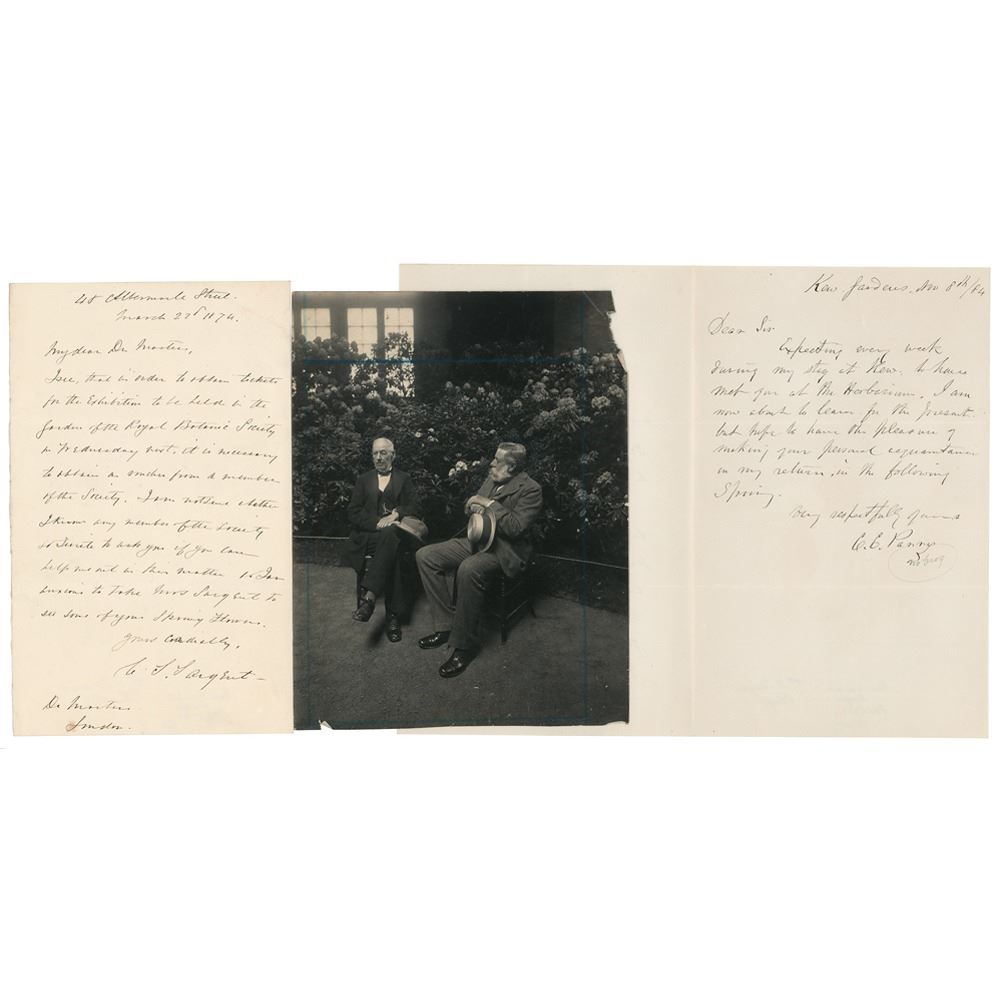 48 Albermarle Street.
March 22d 1874.
My dear Dr Masters,
I see, that in order to obtain tickets
for the Exhibition to be held in the
garden of the Royal Botanic Society
on Wednesday next, it is necessary
to obtain an voucher from a member
of the Society. I am not sure whether
I know any member of the Society
so I write to ask you if you can
help me out in this matter as I am
anxious to take Mrs Sargent to
see some of your Spring Flowers.
Yours cordially,
C. S. Sargent
Dr Masters
London.
Kew Gardens, Nov 8th/84
Dear Sir
Expecting every week
during my stay at Kew, to have
met you at the Herbarium, I am
now about to leave for the present
but hope to have the pleasure of
making your personal acquaintance
on my return, in the following
Spring.
Very respectfully yours
C. C.